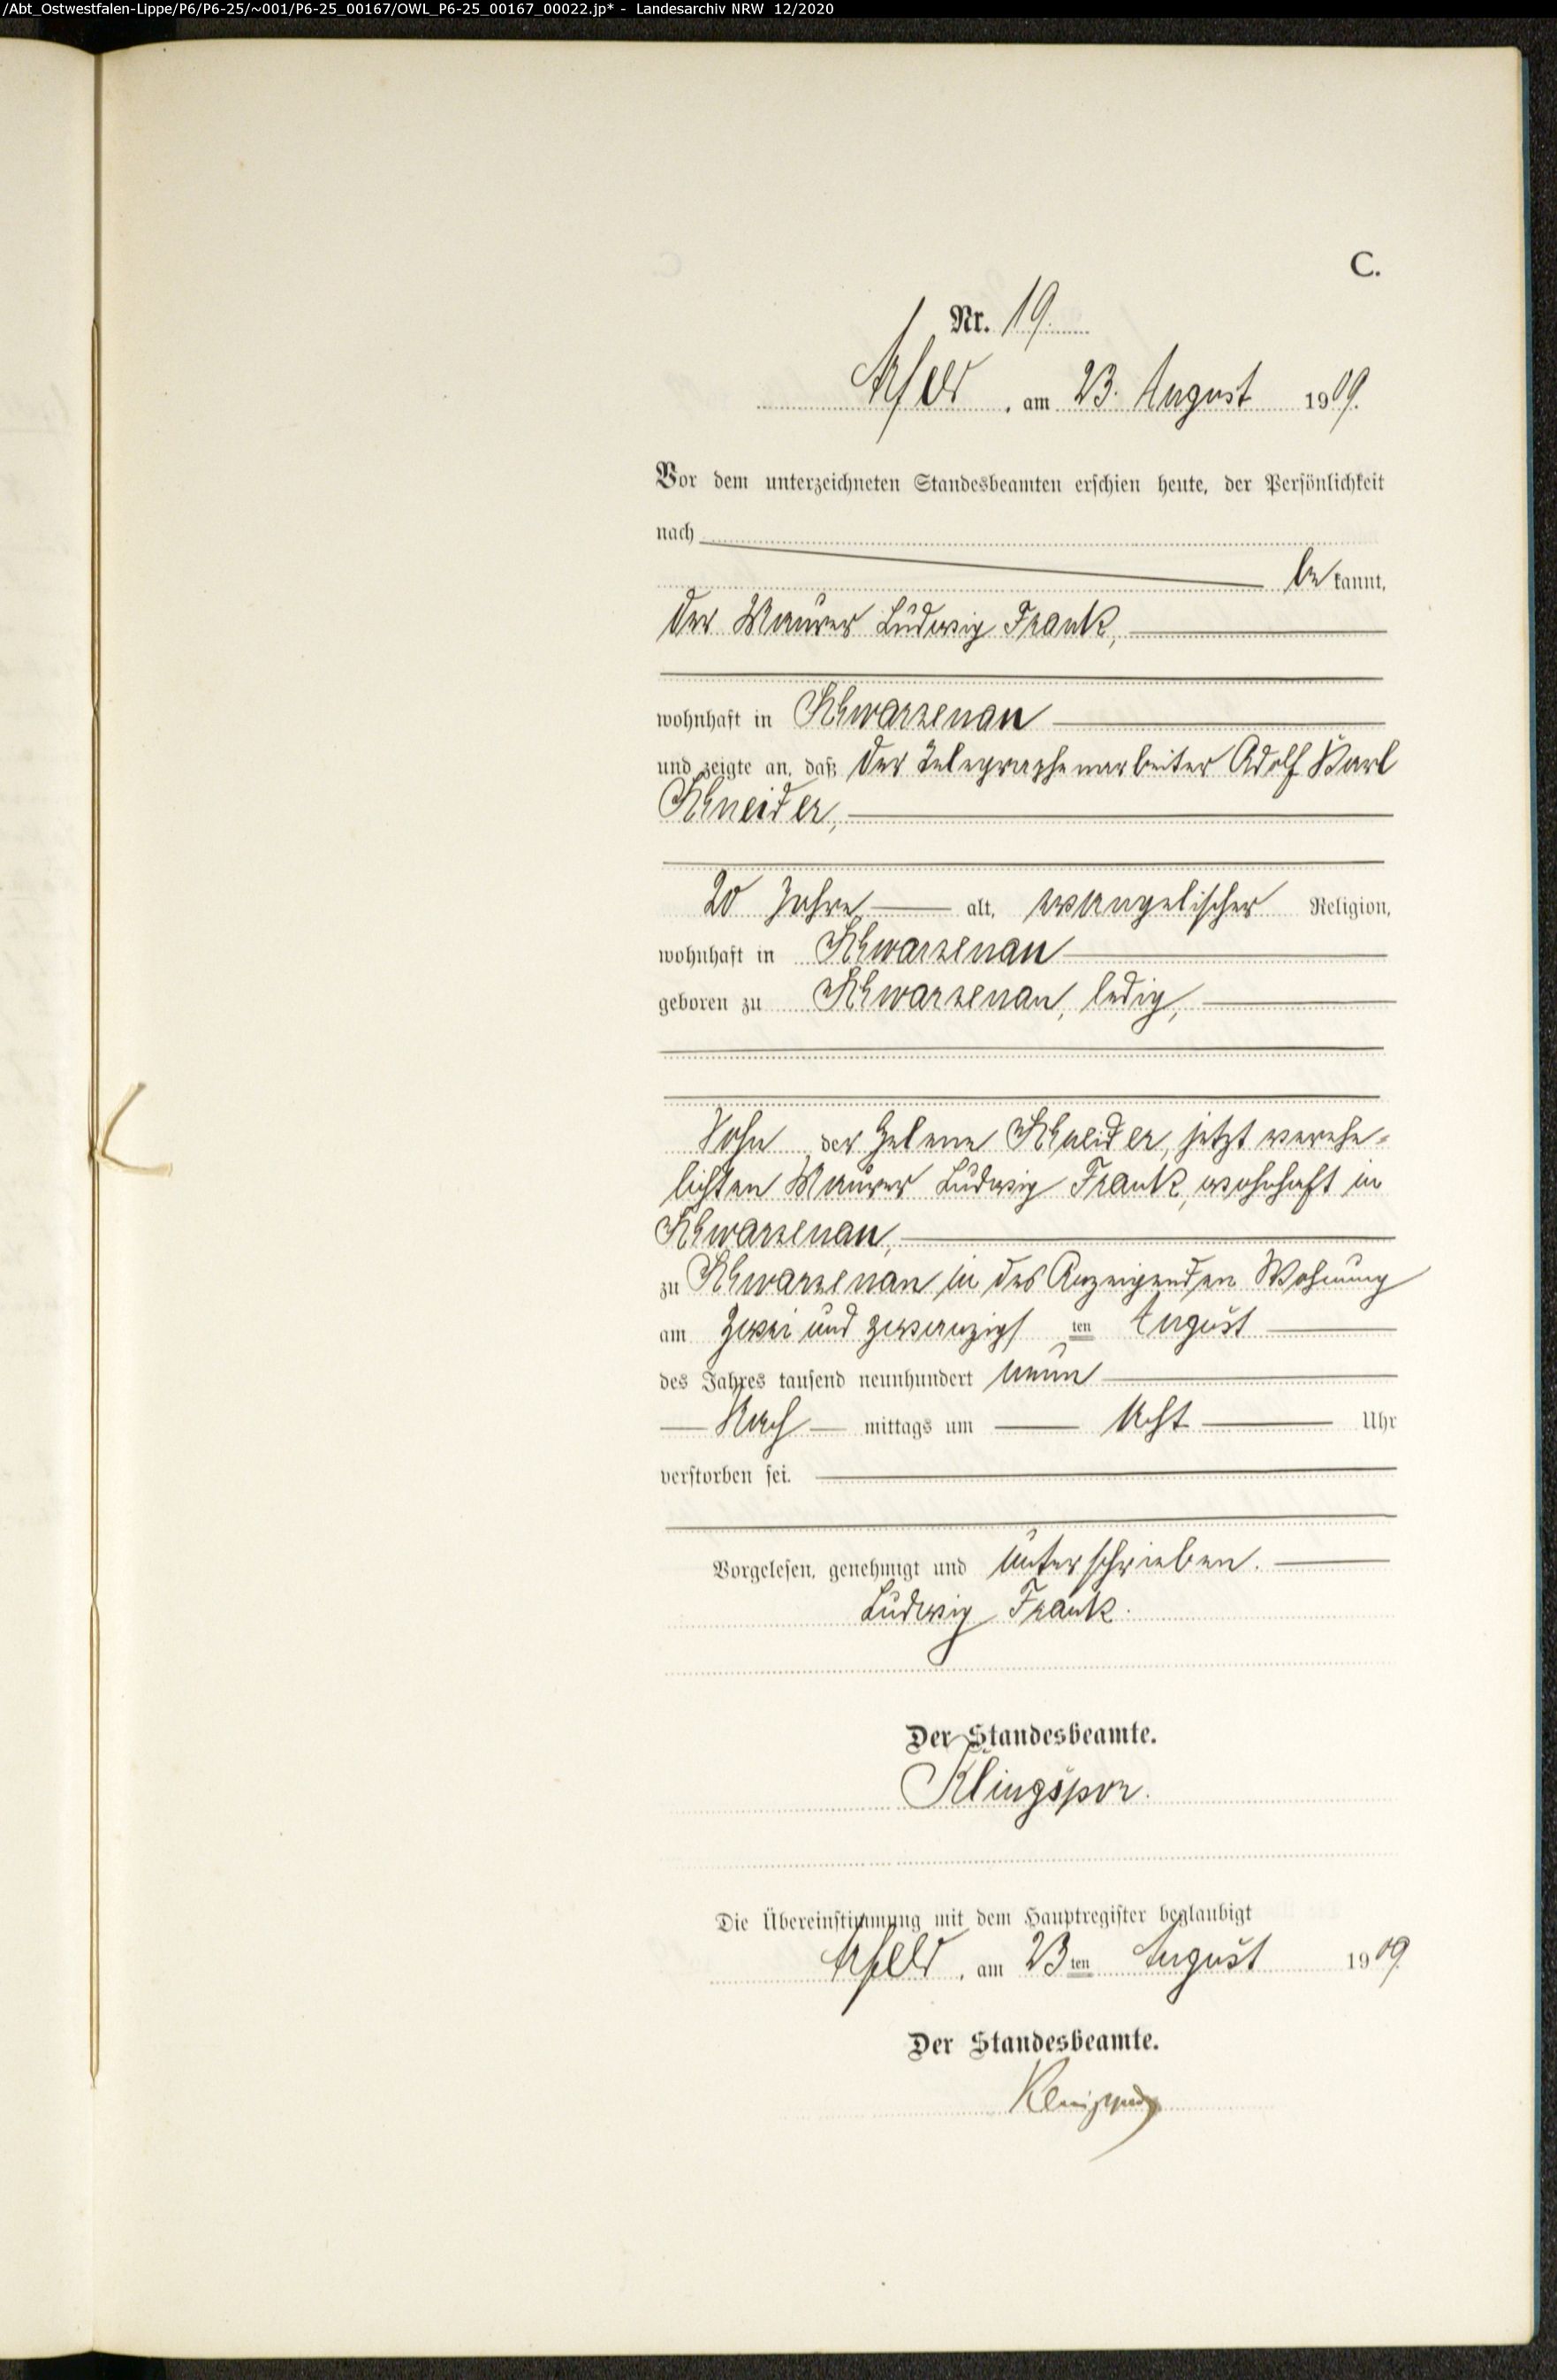 /Abt_Ostwestfalen-Lippe/P6/P6-25/~001/P6-25_00167/OWL_P6-25_00167_00022.jp* - Landesarchiv NRW 12/2020
C.
Nr. 19.
Arfeld, am 23. August 1909.
Vor dem unterzeichneten Standesbeamten erschien heute, der Persönlichkeit
nach
bekannt,
der Maurer Ludwig Frank,
wohnhaft in Schwarzenau
und zeigte an, daß der Telegraphenarbeiter Adolf Karl
Schneider,
20 Jahre alt, evangelischer Religion,
wohnhaft in Schwarzenau
geboren zu Schwarzenau, ledig,
Sohn der Helene Schneider, jetzt verehe-
lichten Maurer Ludwig Frank, wohnhaft in
Schwarzenau,
zu Schwarzenau in des Anzeigenden Wohnung
am zwei und zwanzigsten August
des Jahres tausend neunhundert neun
Nachmittags um acht Uhr
verstorben sei.
Vorgelesen, genehmigt und unterschrieben.
Ludwig Frank.
Der Standesbeamte.
Klingspor.
Die Übereinstimmung mit dem Hauptregister beglaubigt
Arfeld, am 23ten August 1909.
Der Standesbeamte.
Klingspor